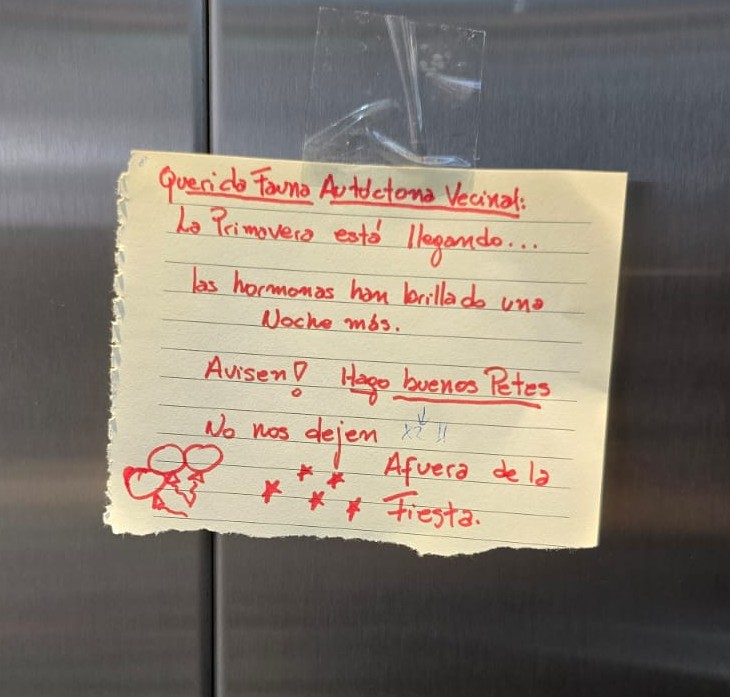 Querida Fauna Autóctona Vecinal:
La Primavera está llegando...
las hormonas han brillado una
Noche más.
Avisen! Hago buenos Petes
No nos dejem x2 !!
Afuera de la
Fiesta.